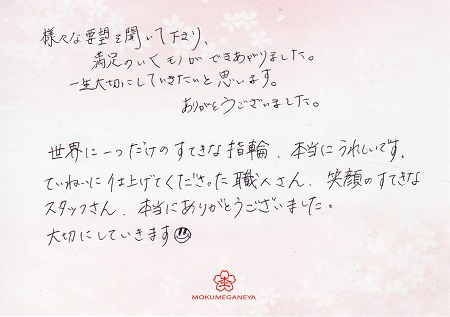 様々な要望を聞いて下さり、
満足のいくモノができあがりました。
一生大切にしていきたいと思います。
ありがとうございました。
世界に一つだけのすてきな指輪、本当にうれしいです。
ていねいに仕上げてくださった職人さん、笑顔のすてきな
スタッフさん、本当にありがとうございました。
大切にしていきます
MOKUMEGANEYA